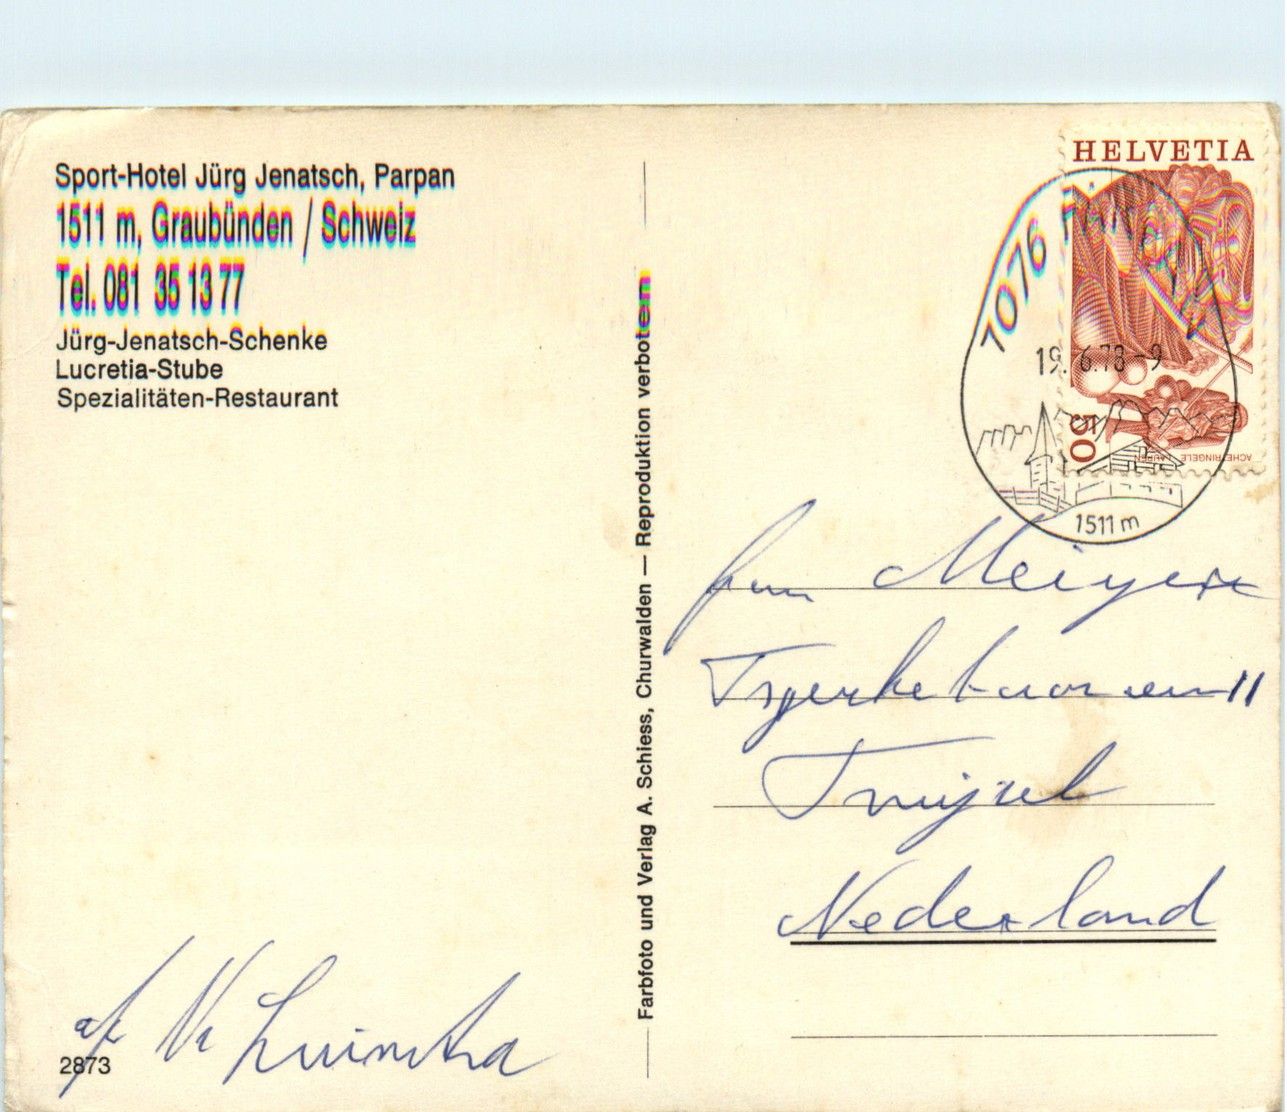 Sport-Hotel Jürg Jenatsch, Parpan
1511 m, Graubünden / Schweiz
Tel. 081 35 13 77
Jürg-Jenatsch-Schenke
Lucretia-Stube
Spezialitäten-Restaurant
2873
Farbfoto und Verlag A. Schiess, Churwalden — Reproduktion verboten
HELVETIA
50
ACHETRINGELE LAUPEN
7076 PARPAN
19. 6.78-9
1511 m
Fam Meijer
11
Nederland